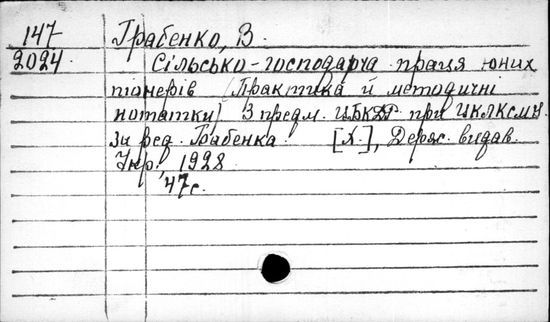 147
2024
Грабенко, В.
Сільсько-господарча праця юних
піонерів (Практика й методичні
нотатки) З предм. ЦБКДР при ЦКЛКСМУ
За ред. Грабенка. [Х.], Держ. видав.
Укр., 1928
47с.